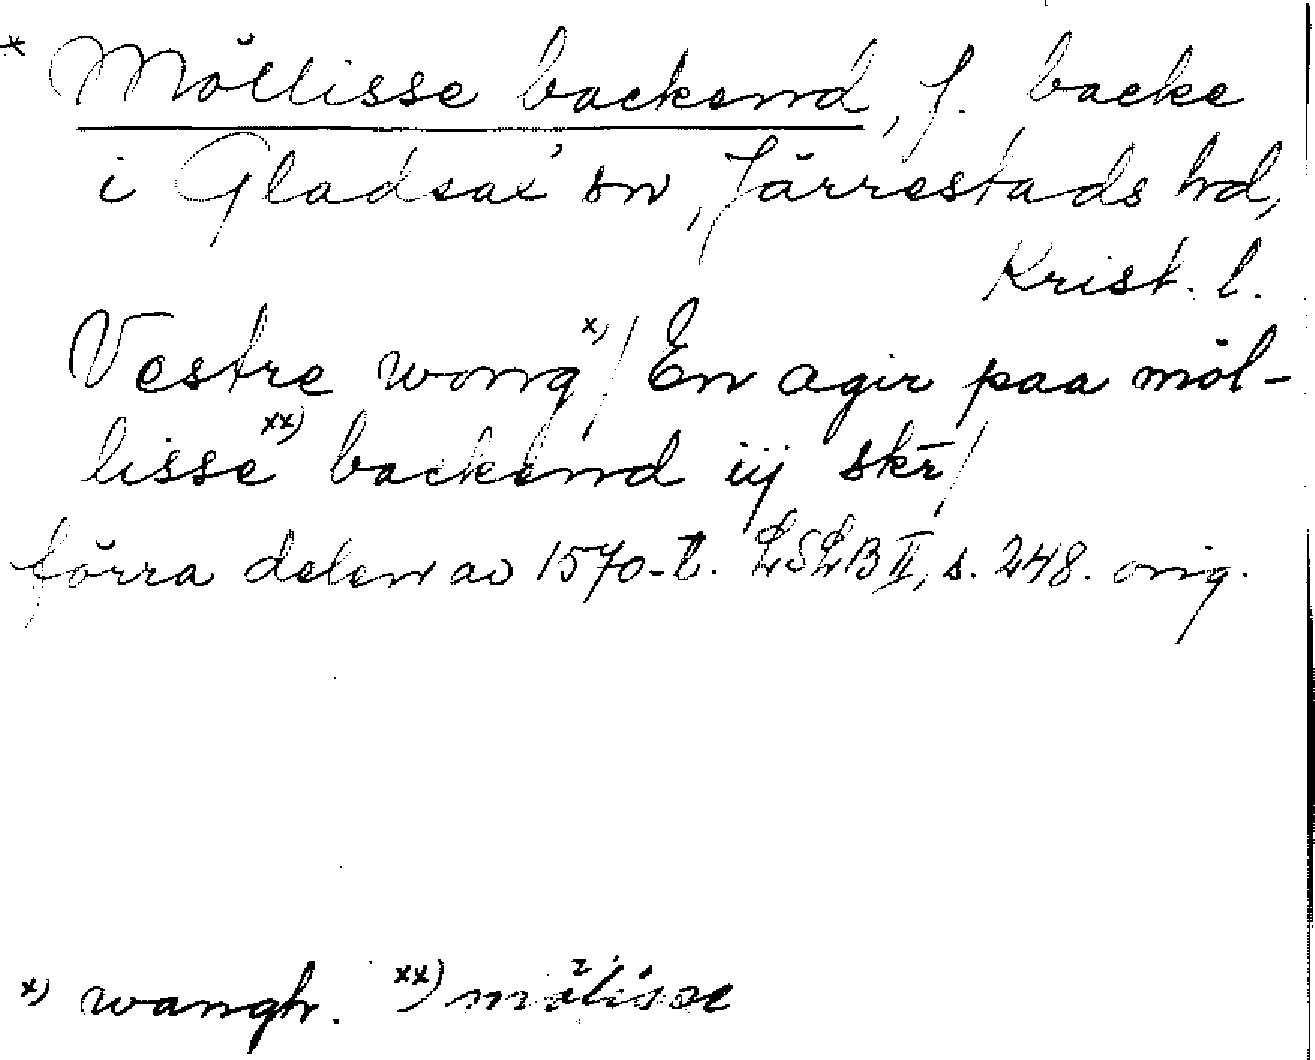 * Möllisse backend, f. backe
i Gladsax' sn, Järrestads hd,
Krist. l.
Vestre wong x) / En agir paa möl-
lisse xx) backend iij skr̄ /
förra delen av 1570-t. LSLB II, s. 248. orig.
x) wangh. xx) mölisse